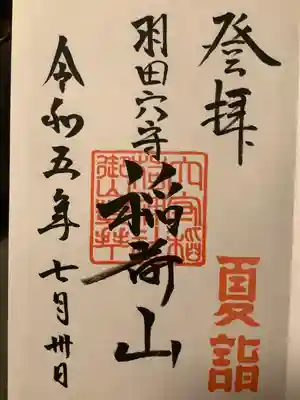 登拝
夏詣
羽田穴守
稲荷山
令和五年七月卅日